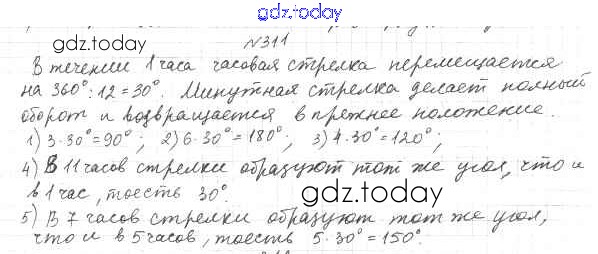 gdz.today
gdz.today
N311
В течении 1 часа часовая стрелка перемещается
на 360°:12=30°. Минутная стрелка делает полный
оборот и возвращается в прежнее положение.
1) 3·30°=90°; 2) 6·30°=180°; 3) 4·30°=120°;
4) В 11 часов стрелки образуют тот же угол, что и
в 1 час, тоесть 30°.
gdz.today
5) В 7 часов стрелки образуют тот же угол,
что и в 5 часов, тоесть 5·30°=150°.